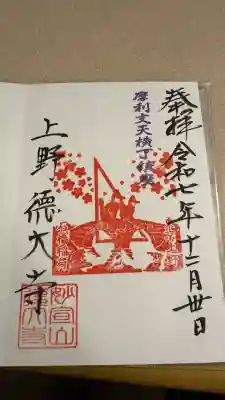 奉拝 令和七年十二月卅日
摩利支天横丁縁起
上野 徳大寺
妙宣山
徳大寺